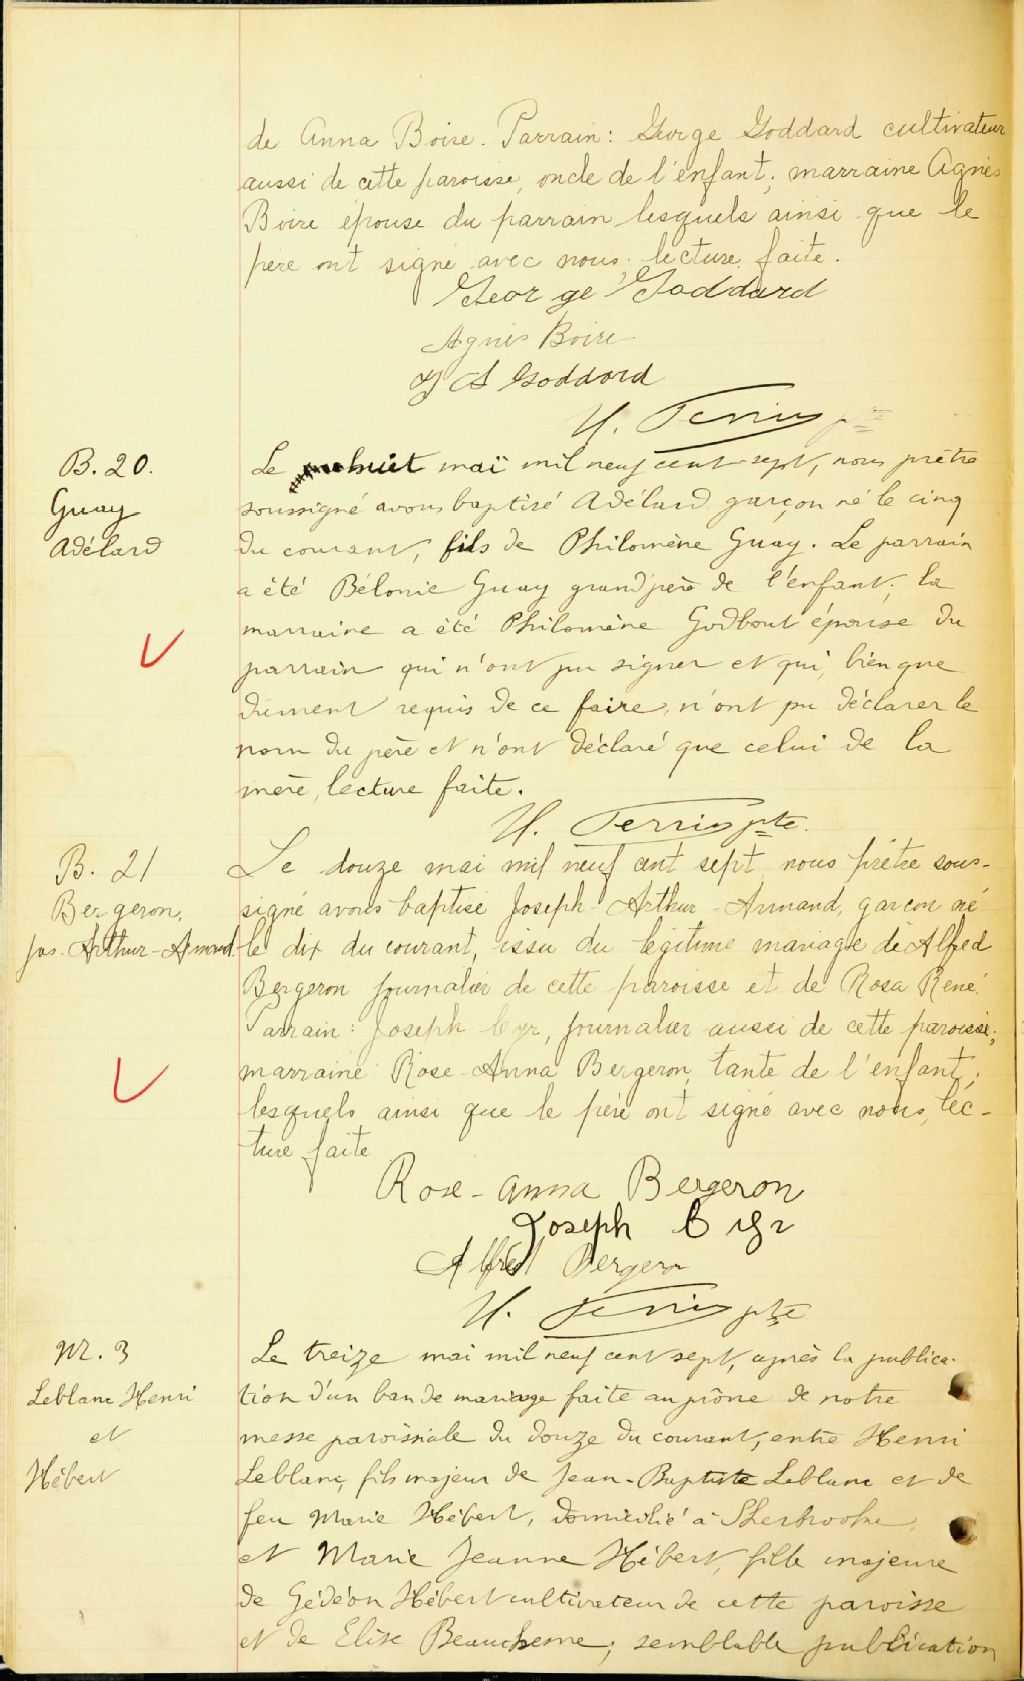 de Anna Boire. Parrain: George Goddard cultivateur
aussi de cette paroisse, oncle de l'enfant; marraine Agnès
Boire épouse du parrain lesquels ainsi que le
père ont signé avec nous, lecture faite.
George Goddard
Agnes Boire
A Goddard
H. Perrin ptre
B. 20.
Guay
Adélard
Le huit maï mil neuf cent sept, nous prêtre
soussigné avons baptisé Adélard garçon né le cinq
du courant, fils de Philomène Guay. Le parrain
a été Bélonie Guay grand'père de l'enfant; la
marraine a été Philomène Godbout épouse du
parrain qui n'ont pu signer et qui, bien que
dûment requis de ce faire, n'ont pu déclarer le
nom du père et n'ont déclaré que celui de la
mère, lecture faite.
H. Perrin ptre.
B. 21
Bergeron,
Jos. Arthur-Armand
Le douze mai mil neuf cent sept nous prêtre sous-
signé avons baptisé Joseph-Arthur-Armand, garcon né
le dix du courant, issu du légitime mariage de Alfred
Bergeron journalier de cette paroisse et de Rosa René.
Parrain: Joseph Cyr, journalier aussi de cette paroisse;
marraine Rose-Anna Bergeron, tante de l'enfant;
lesquels ainsi que le père ont signé avec nous, lec-
ture faite
Rose-anna Bergeron
Joseph Cyr
Alfred Bergeron
H. Perrin ptre
M. 3
Leblanc Henri
et
Hébert
Le treize mai mil neuf cent sept, après la publica-
tion d'un ban de mariage faite au prône de notre
messe paroissiale du douze du courant, entre Henri
Leblanc, fils majeur de Jean-Baptiste Leblanc et de
feu Marie Hébert, domicilié à Sherbrooke,
et Marie Jeanne Hébert, fille majeure
de Gédéon Hébert cultivateur de cette paroisse
et de Elise Beauchesne; semblable publication